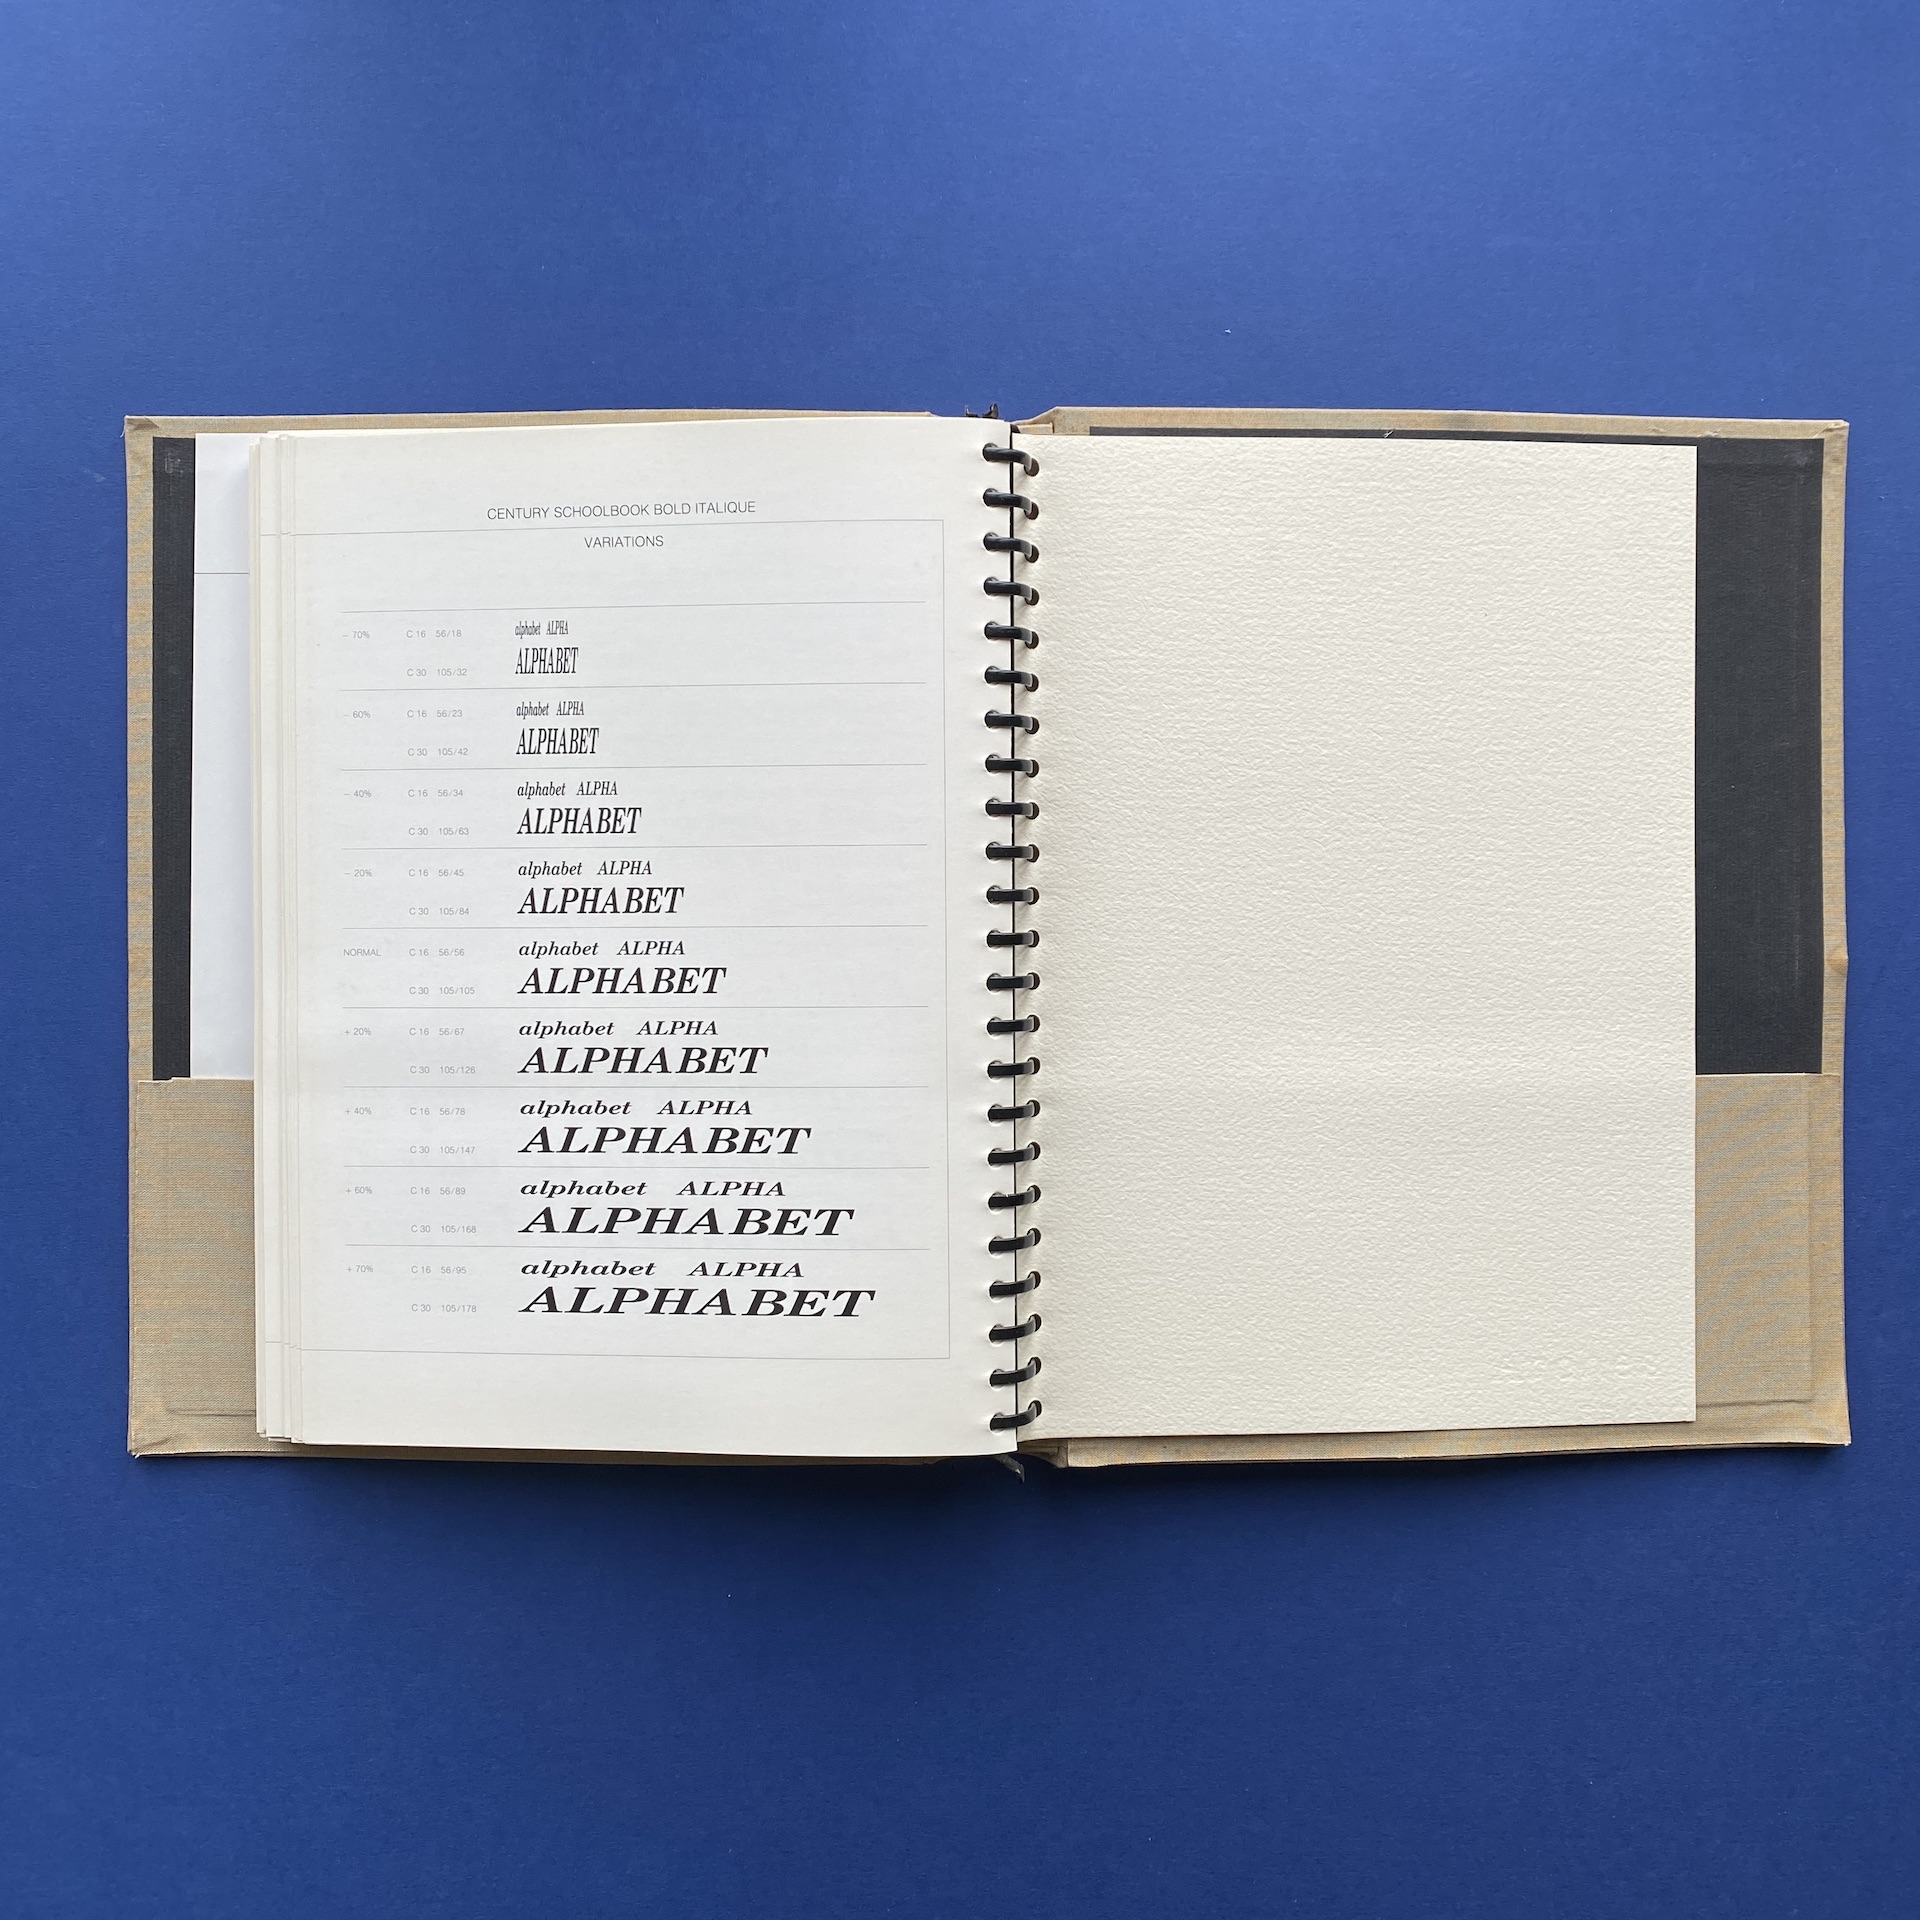 CENTURY SCHOOLBOOK BOLD ITALIQUE
VARIATIONS
– 70% C 16 56/18 alphabet ALPHA
C 30 105/32 ALPHABET
– 60% C 16 56/23 alphabet ALPHA
C 30 105/42 ALPHABET
– 40% C 16 56/34 alphabet ALPHA
C 30 105/63 ALPHABET
– 20% C 16 56/45 alphabet ALPHA
C 30 105/84 ALPHABET
NORMAL C 16 56/56 alphabet ALPHA
C 30 105/105 ALPHABET
+ 20% C 16 56/67 alphabet ALPHA
C 30 105/126 ALPHABET
+ 40% C 16 56/78 alphabet ALPHA
C 30 105/147 ALPHABET
+ 60% C 16 56/89 alphabet ALPHA
C 30 105/168 ALPHABET
+ 70% C 16 56/95 alphabet ALPHA
C 30 105/178 ALPHABET